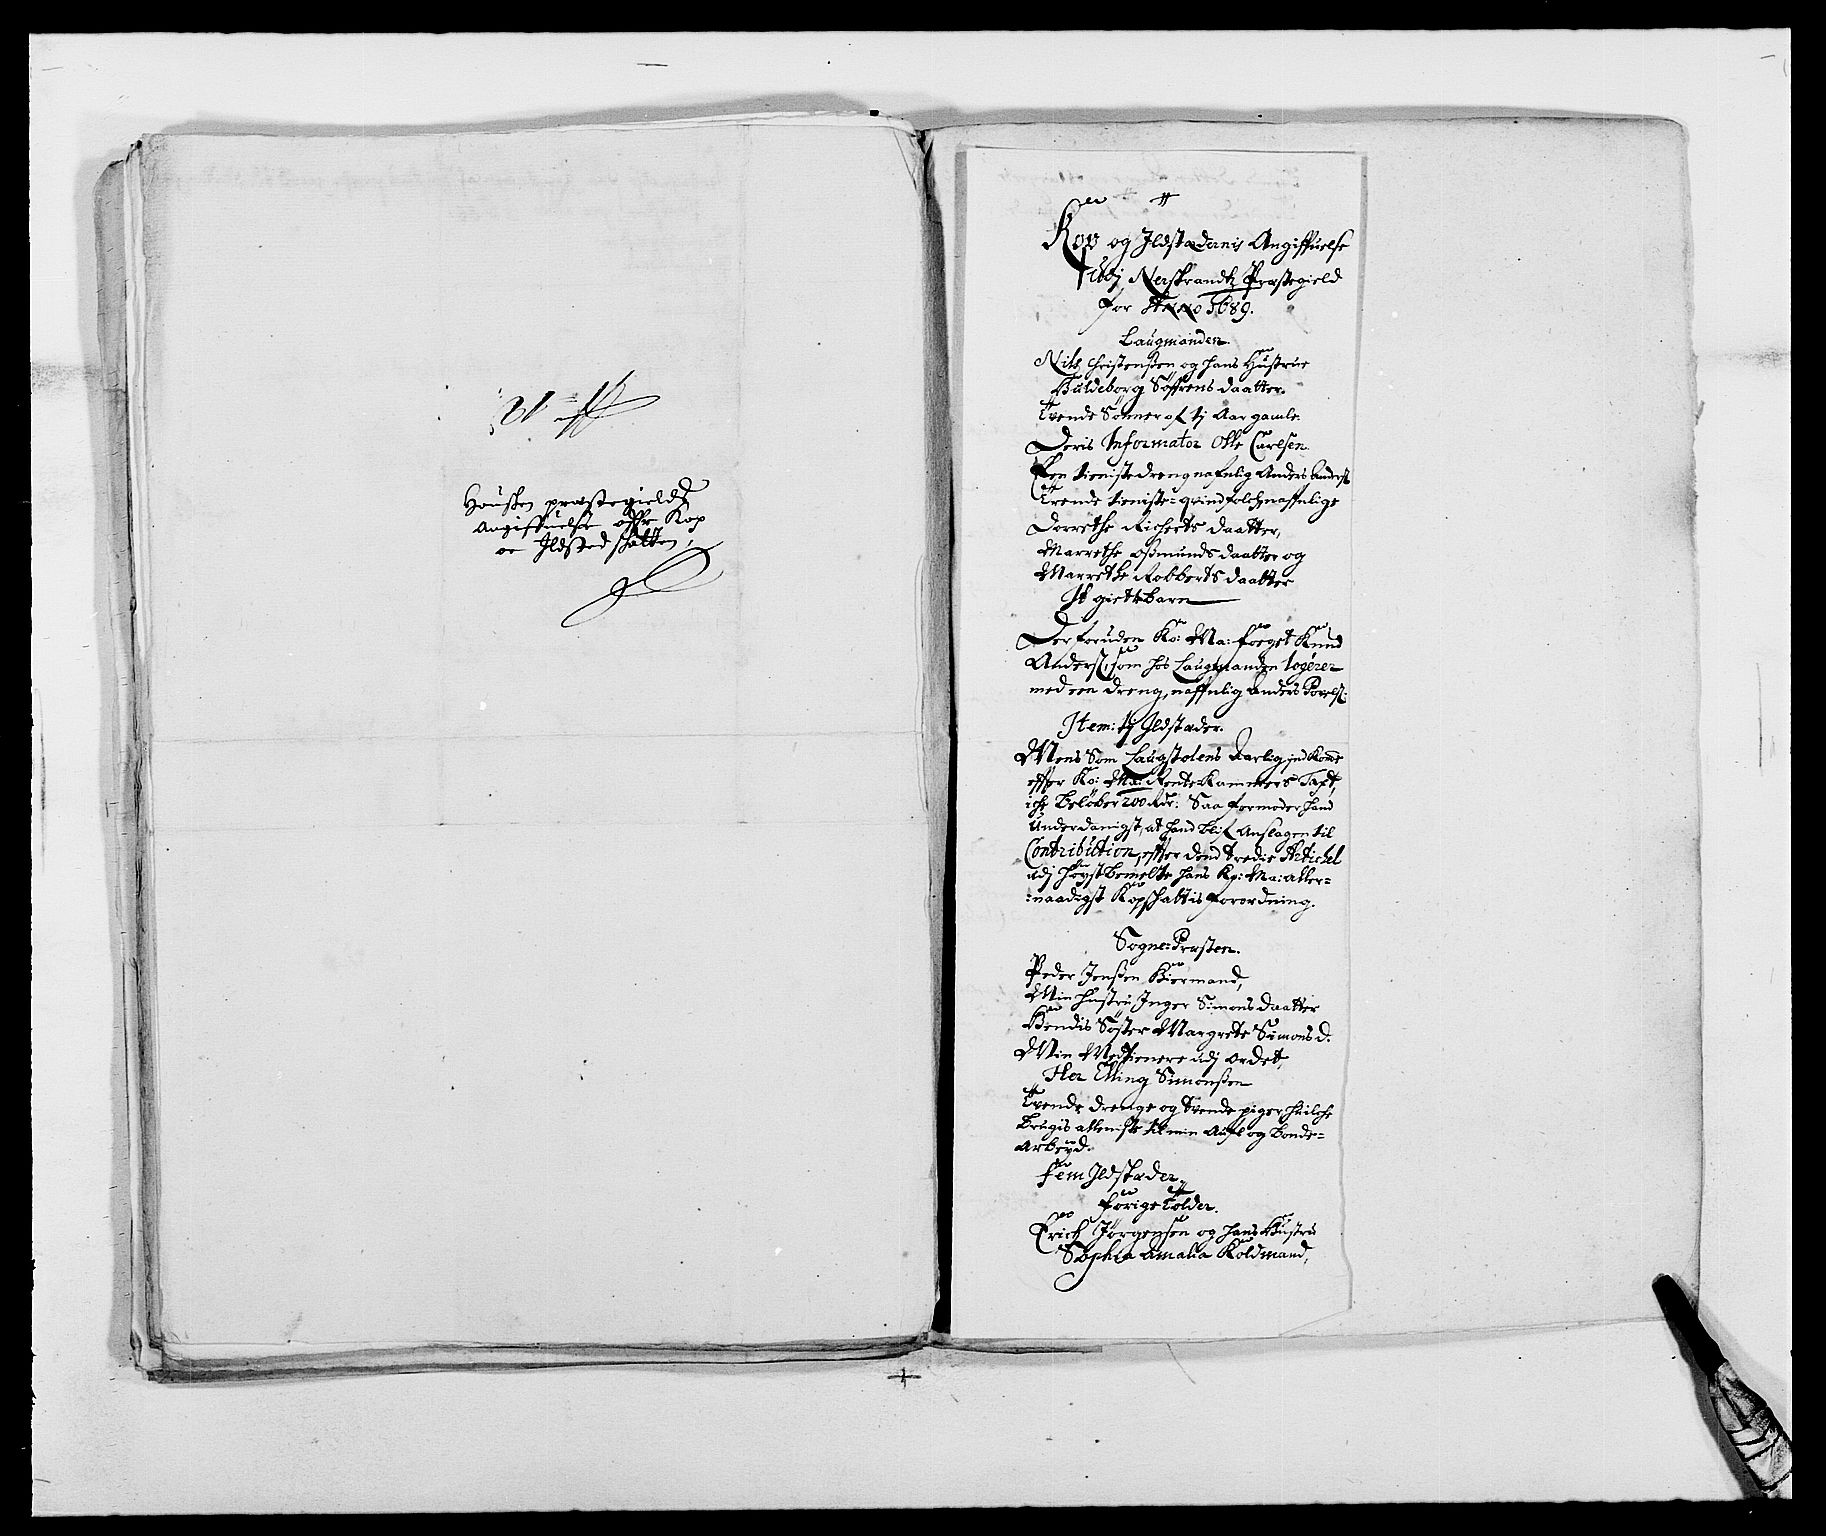 Housken præstegieldtz
Angiffuelse offr Kop
oc Ildsted skatten,
Kop og Ildstædernis Angiffuelse
udj Nerstrandtz Præstegield
for Anno 1689.
Laugmanden.
Nils Christensen og hans Hustrue
Guldeborg Søfrens daatter.
Tvende Sønner af vj Aar gamle.
Deris Informator Olle Carlsen.
Een tienistedreng nafnlig Anders Anders:
Trende tieniste-qvindfolch naffnlige
Dorrethe Richerts daatter,
Marrethe Osmunds daatter og
Marrethe Robberts daatter
It giestbarn
Der foruden Ko: Ma: foeget Knud
Anders: som hos Laugmanden logerer
med een dreng, naffnlig Anders Povels:
Item: vj Ildstæder.
Mens Som Laugstolens Aarlig ind Komme
effter Ko: Ma: Rente Kammers Taxt,
iche beløber 200 Rdr: Saa formoder hand
Underdanigst, at hand blif Anslagen til
Contribution, effter dend tredie Artichel
udj høystbemelte hans Ko: Ma: aller-
-naadigst Kopskattis forordning.
Sogne-Præsten.
Peder Jensen Biermand,
Min hustru Inger Simons daatter
Hendis Søster Margrete Simons d.
Min Medtienere udj Ordet,
Her Elling Simonsen
Tvende drenge og tvende piger, huilche
brugis alleniste til min Aufl og bonde-
Arbeyd.
Fem Ildstæder.
Forige Tolder.
Erich Jørgensen og hans Hustru
Sophia Amalia Koldmand,